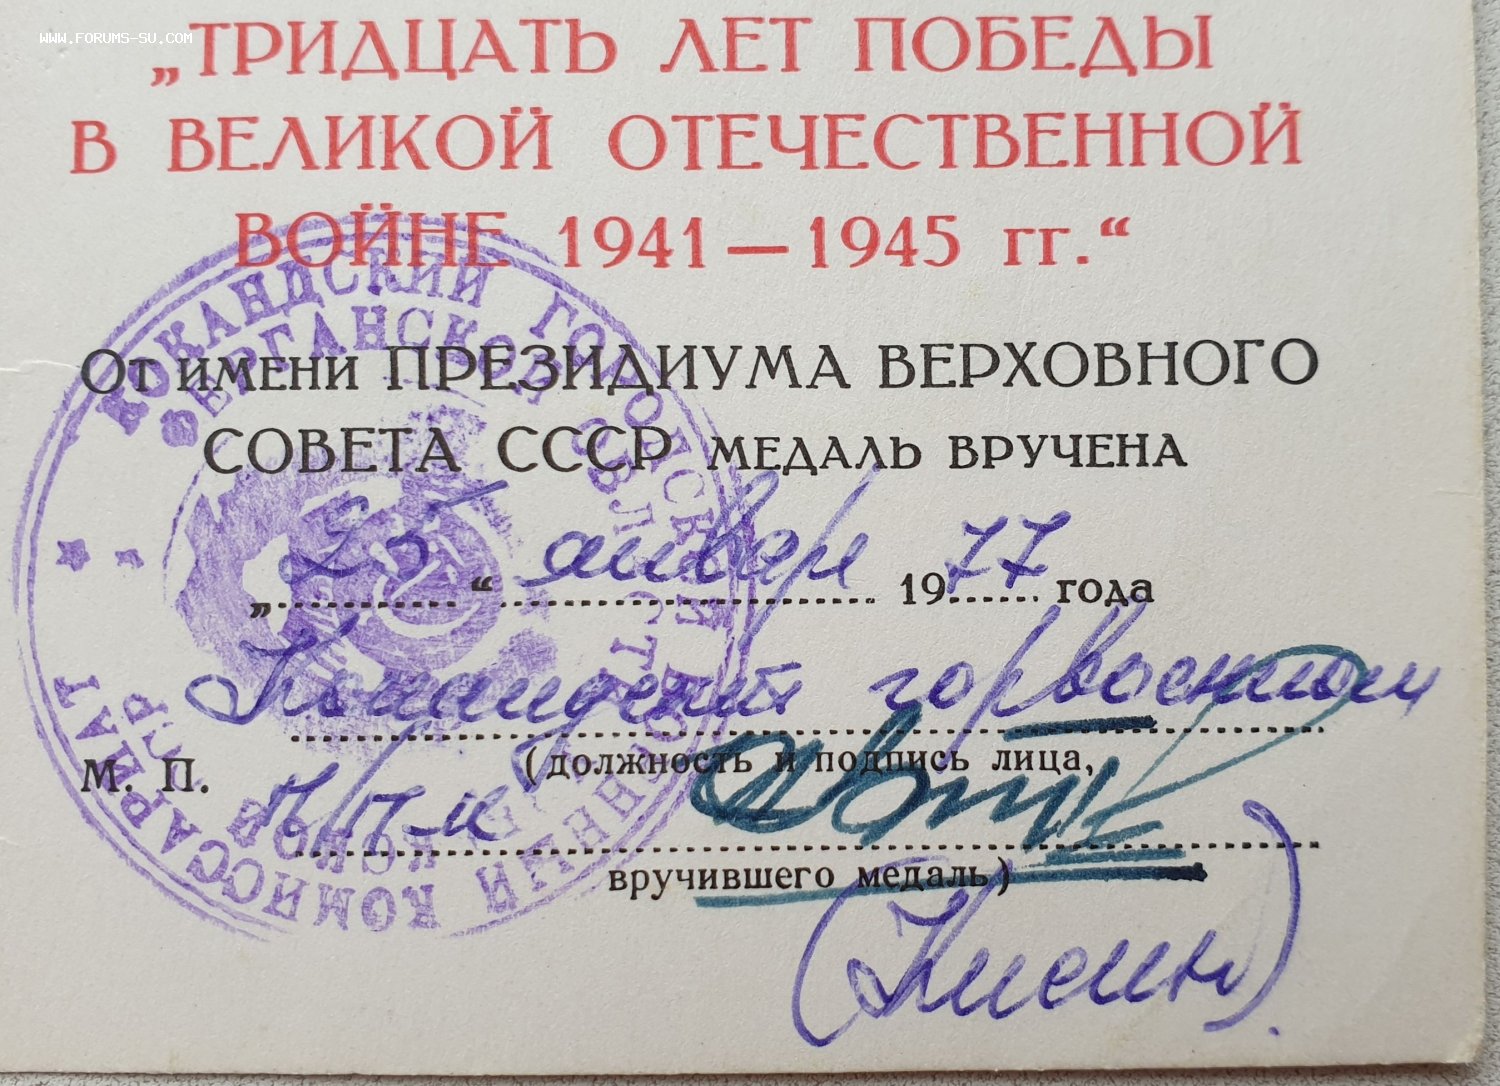 www.forums-su.com
„ТРИДЦАТЬ ЛЕТ ПОБЕДЫ
В ВЕЛИКОЙ ОТЕЧЕСТВЕННОЙ
ВОЙНЕ 1941—1945 гг.“
От имени ПРЕЗИДИУМА ВЕРХОВНОГО
СОВЕТА СССР МЕДАЛЬ ВРУЧЕНА
„25“ январь 1977 года
горвоенком
(должность и подпись лица,
М. П.
п/п-к
вручившего медаль)
КОКАНДСКИЙ ГОРОДСКОЙ ВОЕННЫЙ КОМИССАРИАТ
ФЕРГАНСКОЙ ОБЛАСТИ